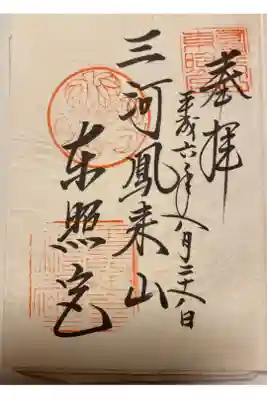 奉拝
平成六年八月二十八日
三河鳳来山
東照宮